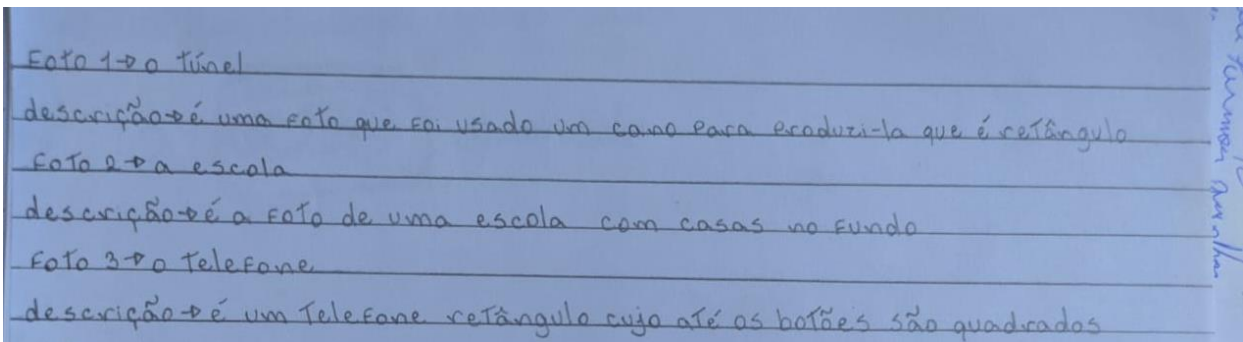 Foto 1→ o túnel
descrição→ é uma foto que foi usado um cano para produzi-la que é retângulo
Foto 2→ a escola
descrição→ é a foto de uma escola com casas no fundo
Foto 3→ o telefone
descrição→ é um telefone retângulo cujo até os botões são quadrados